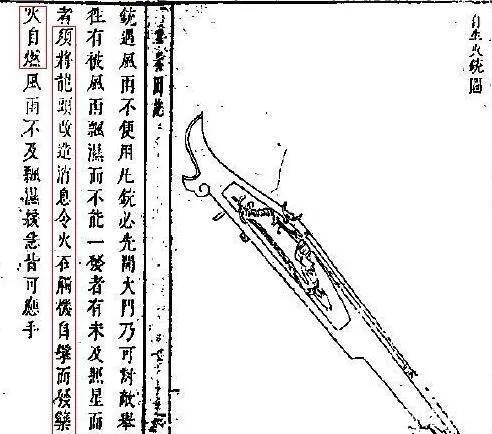 自生火銃圖
銃遇風雨不便用凡銃必先開火門乃可對敵舉
往有被風雨飄濕而不能一發者有未及照星而
者須將龍頭改造消息令火石觸機自擊而發藥
火自燃風雨不及飄濕緩急皆可應手